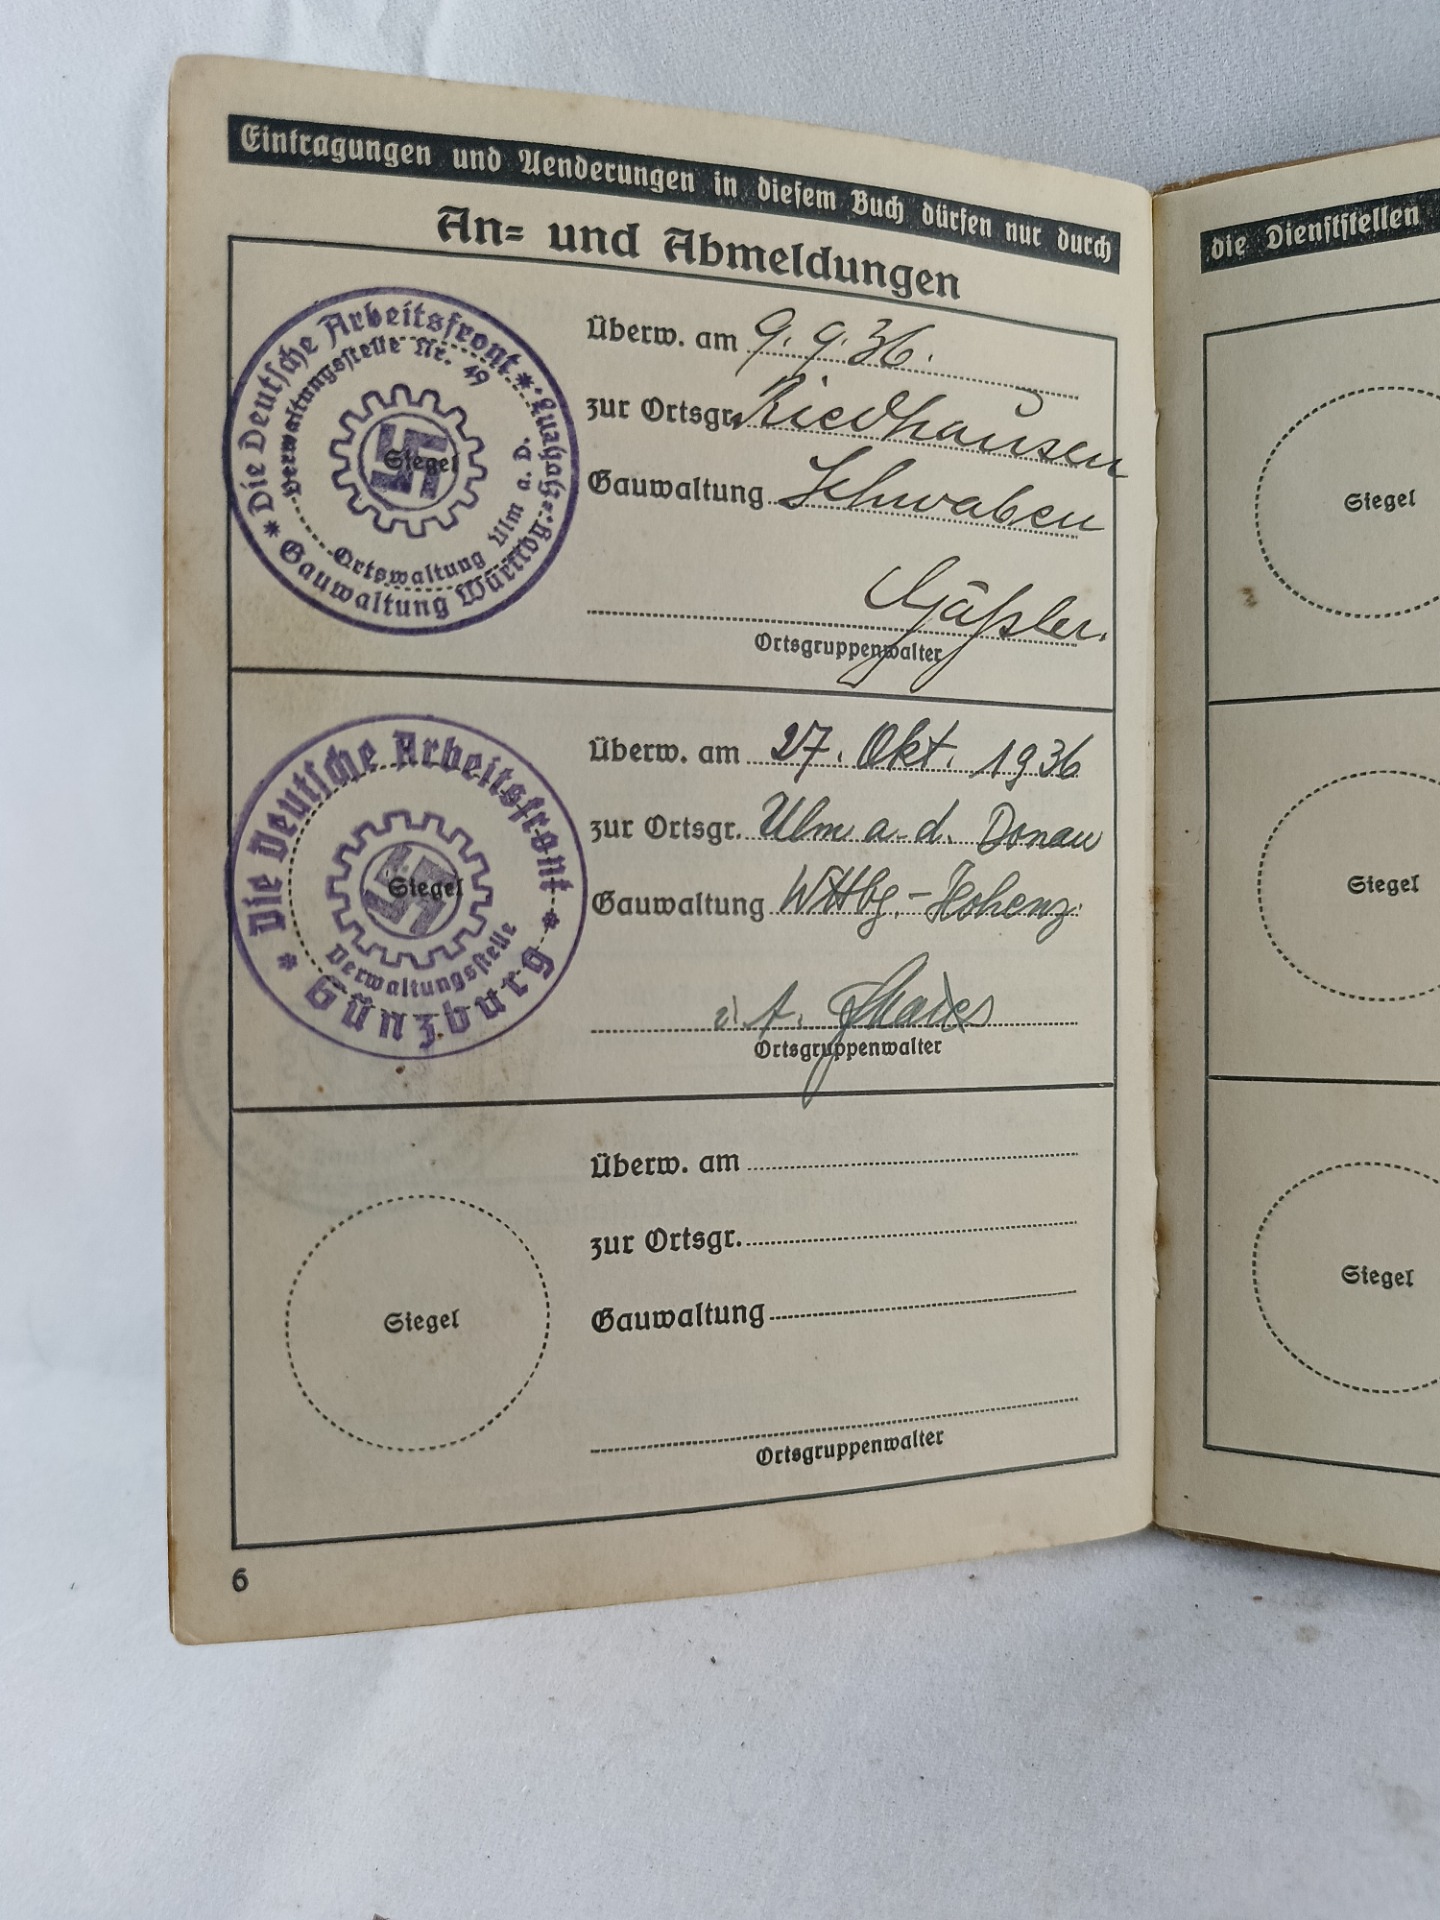 Eintragungen und Aenderungen in diesem Buch dürfen nur durch
An- und Abmeldungen
Die Deutsche Arbeitsfront
Verwaltungsstelle Nr. 49
Siegel
Ortswaltung Ulm a. D.
Gauwaltung Württbg.
Überw. am 9. 9. 36.
zur Ortsgr. Riedhausen
Gauwaltung Schwaben
Ortsgruppenwalter
Die Deutsche Arbeitsfront
Siegel
Verwaltungsstelle
Günzburg
Überw. am 27. Okt. 1936
zur Ortsgr. Ulm a. d. Donau
Gauwaltung Wttbg.-Hohenz.
Ortsgruppenwalter
Siegel
Überw. am
zur Ortsgr.
Gauwaltung
Ortsgruppenwalter
6
die Dienststellen
Siegel
Siegel
Siegel